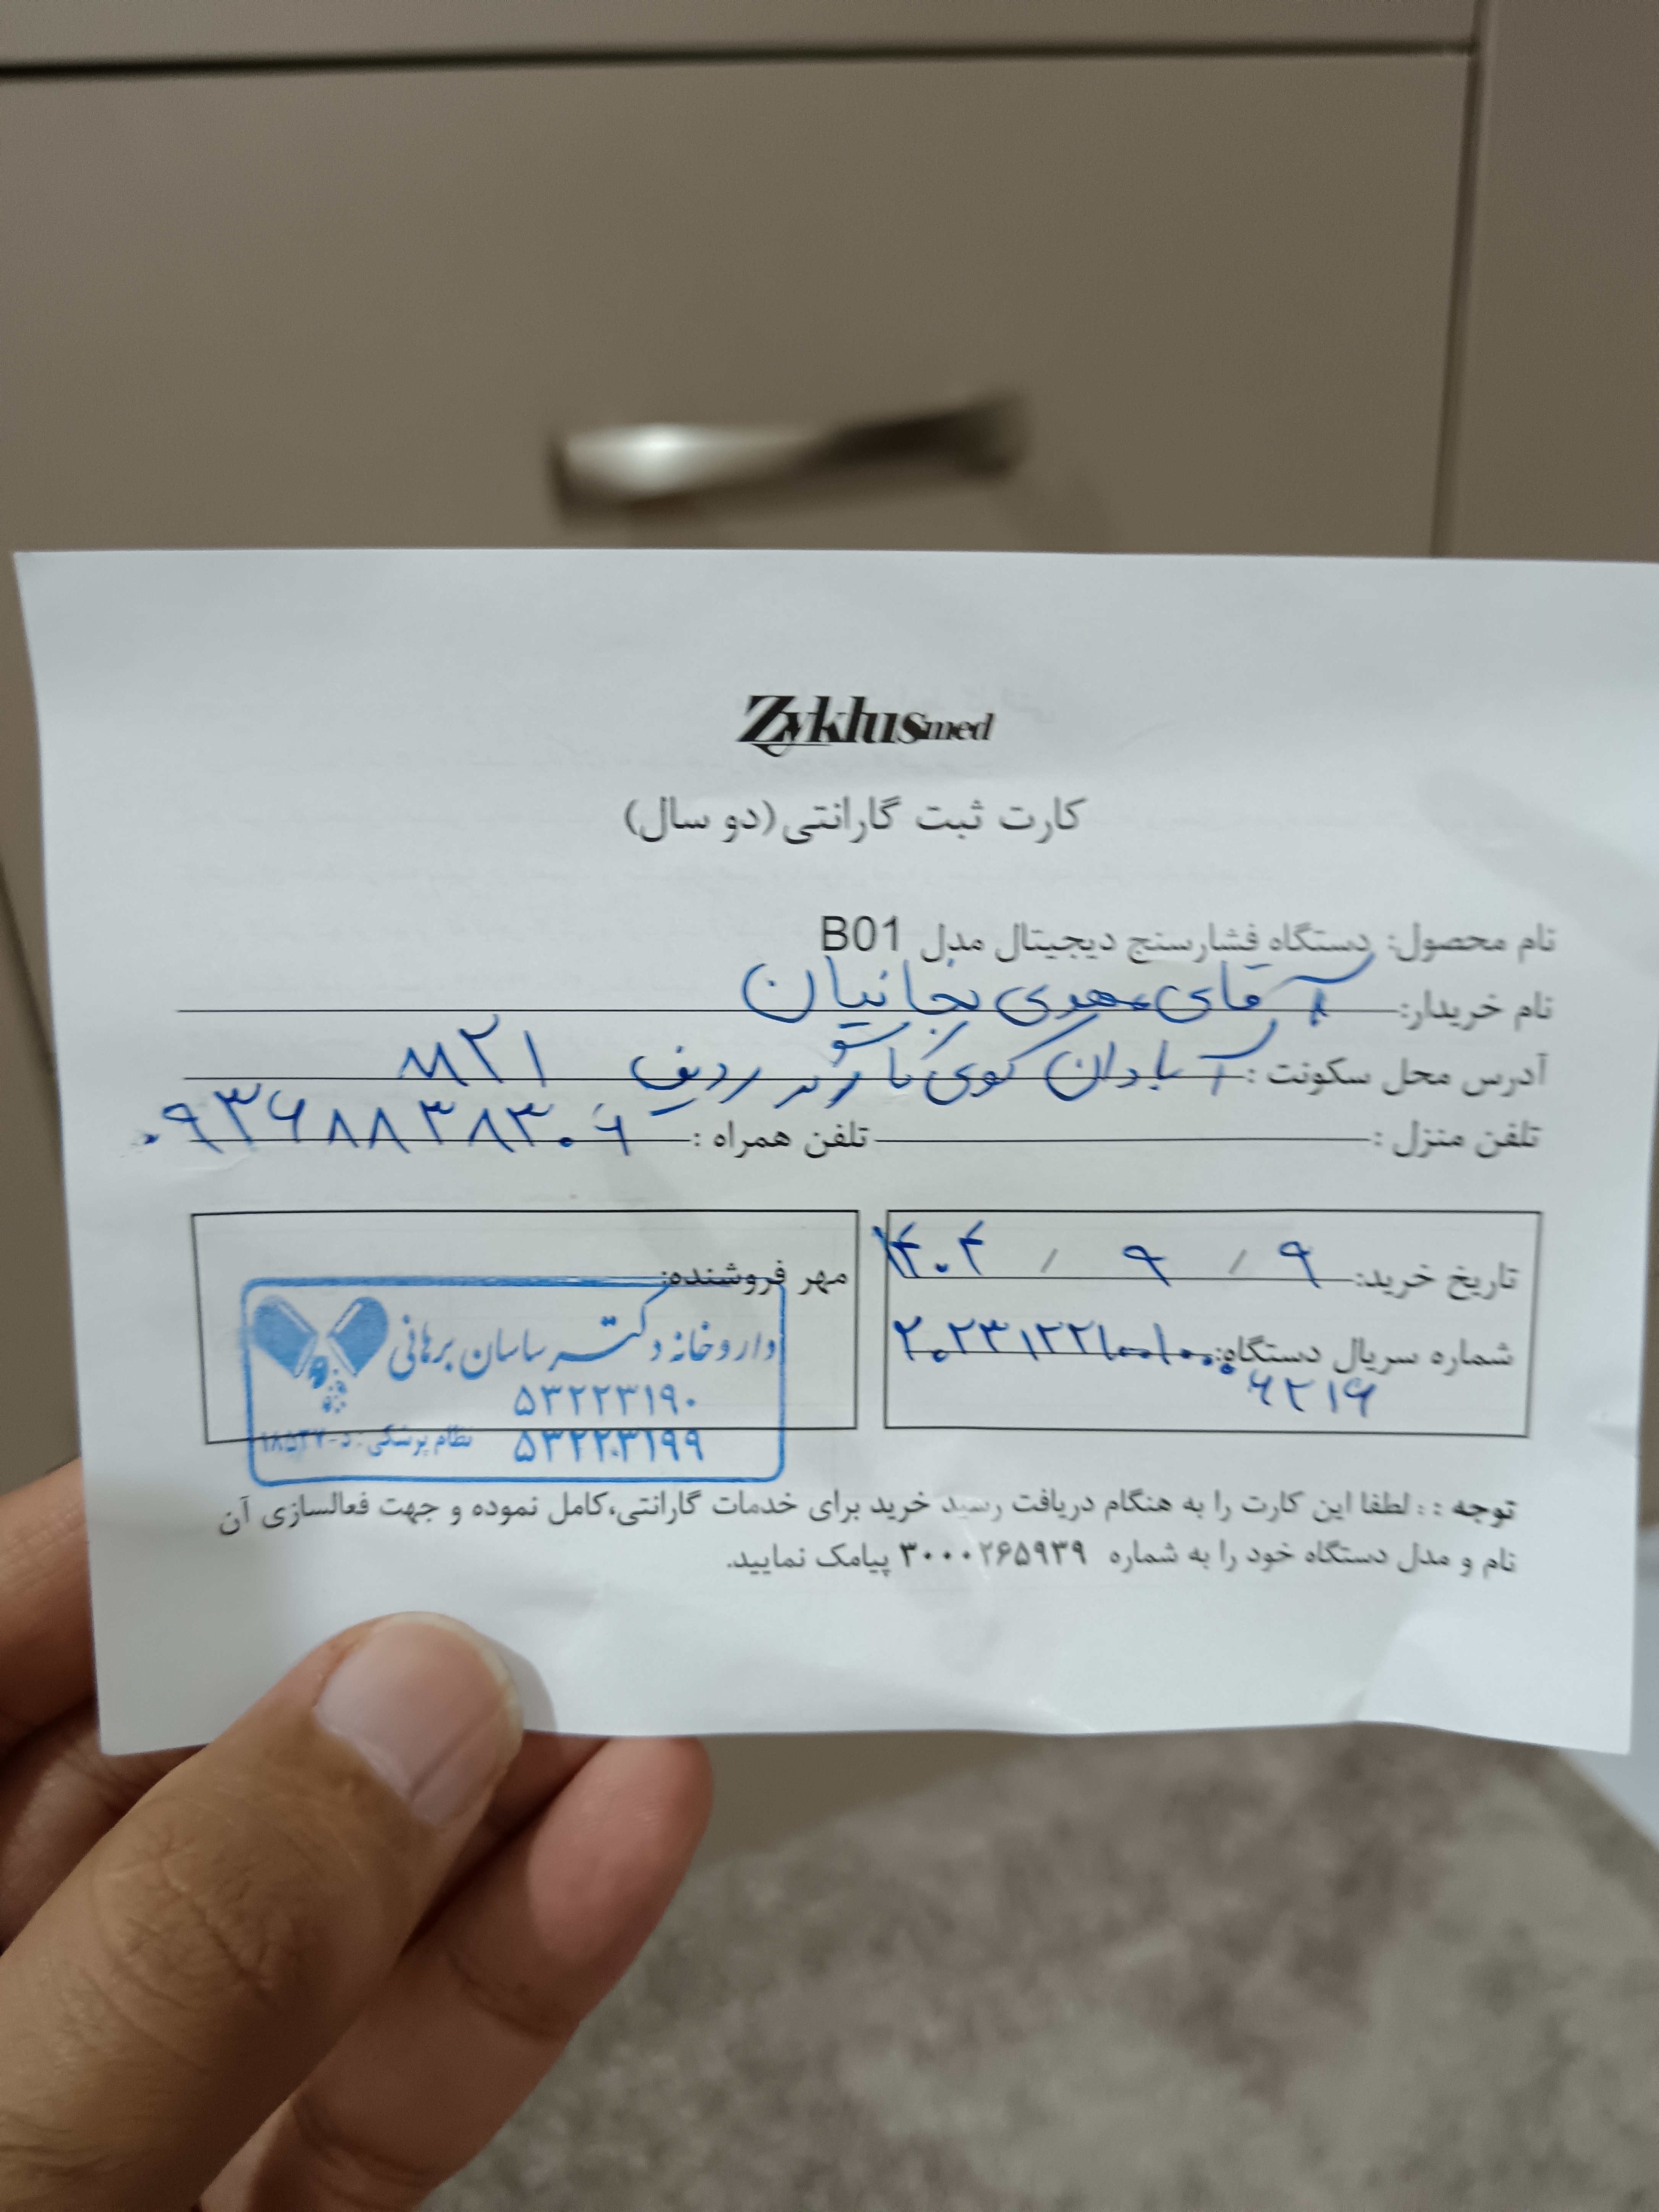 Zyklusmed
کارت ثبت گارانتی (دو سال)
نام محصول: دستگاه فشارسنج دیجیتال مدل B01
نام خریدار: آقای مهدی نجاتیان
آدرس محل سکونت: آبادان کوی کارگر ردیف
تلفن منزل: تلفن همراه: ۰۹۳۶۸۸۳۸۳۰۶
تاریخ خرید: ۹ / ۹ / ۱۴۰۴
شماره سریال دستگاه:
۶۲۱۶
مهر فروشنده:
داروخانه دکتر ساسان برهانی
۵۳۲۲۳۱۹۰
۵۳۲۲۳۱۹۹
نظام پزشکی: د-
توجه :: لطفا این کارت را به هنگام دریافت رسید خرید برای خدمات گارانتی،کامل نموده و جهت فعالسازی آن
نام و مدل دستگاه خود را به شماره ۳۰۰۰۲۶۵۹۳۹ پیامک نمایید.